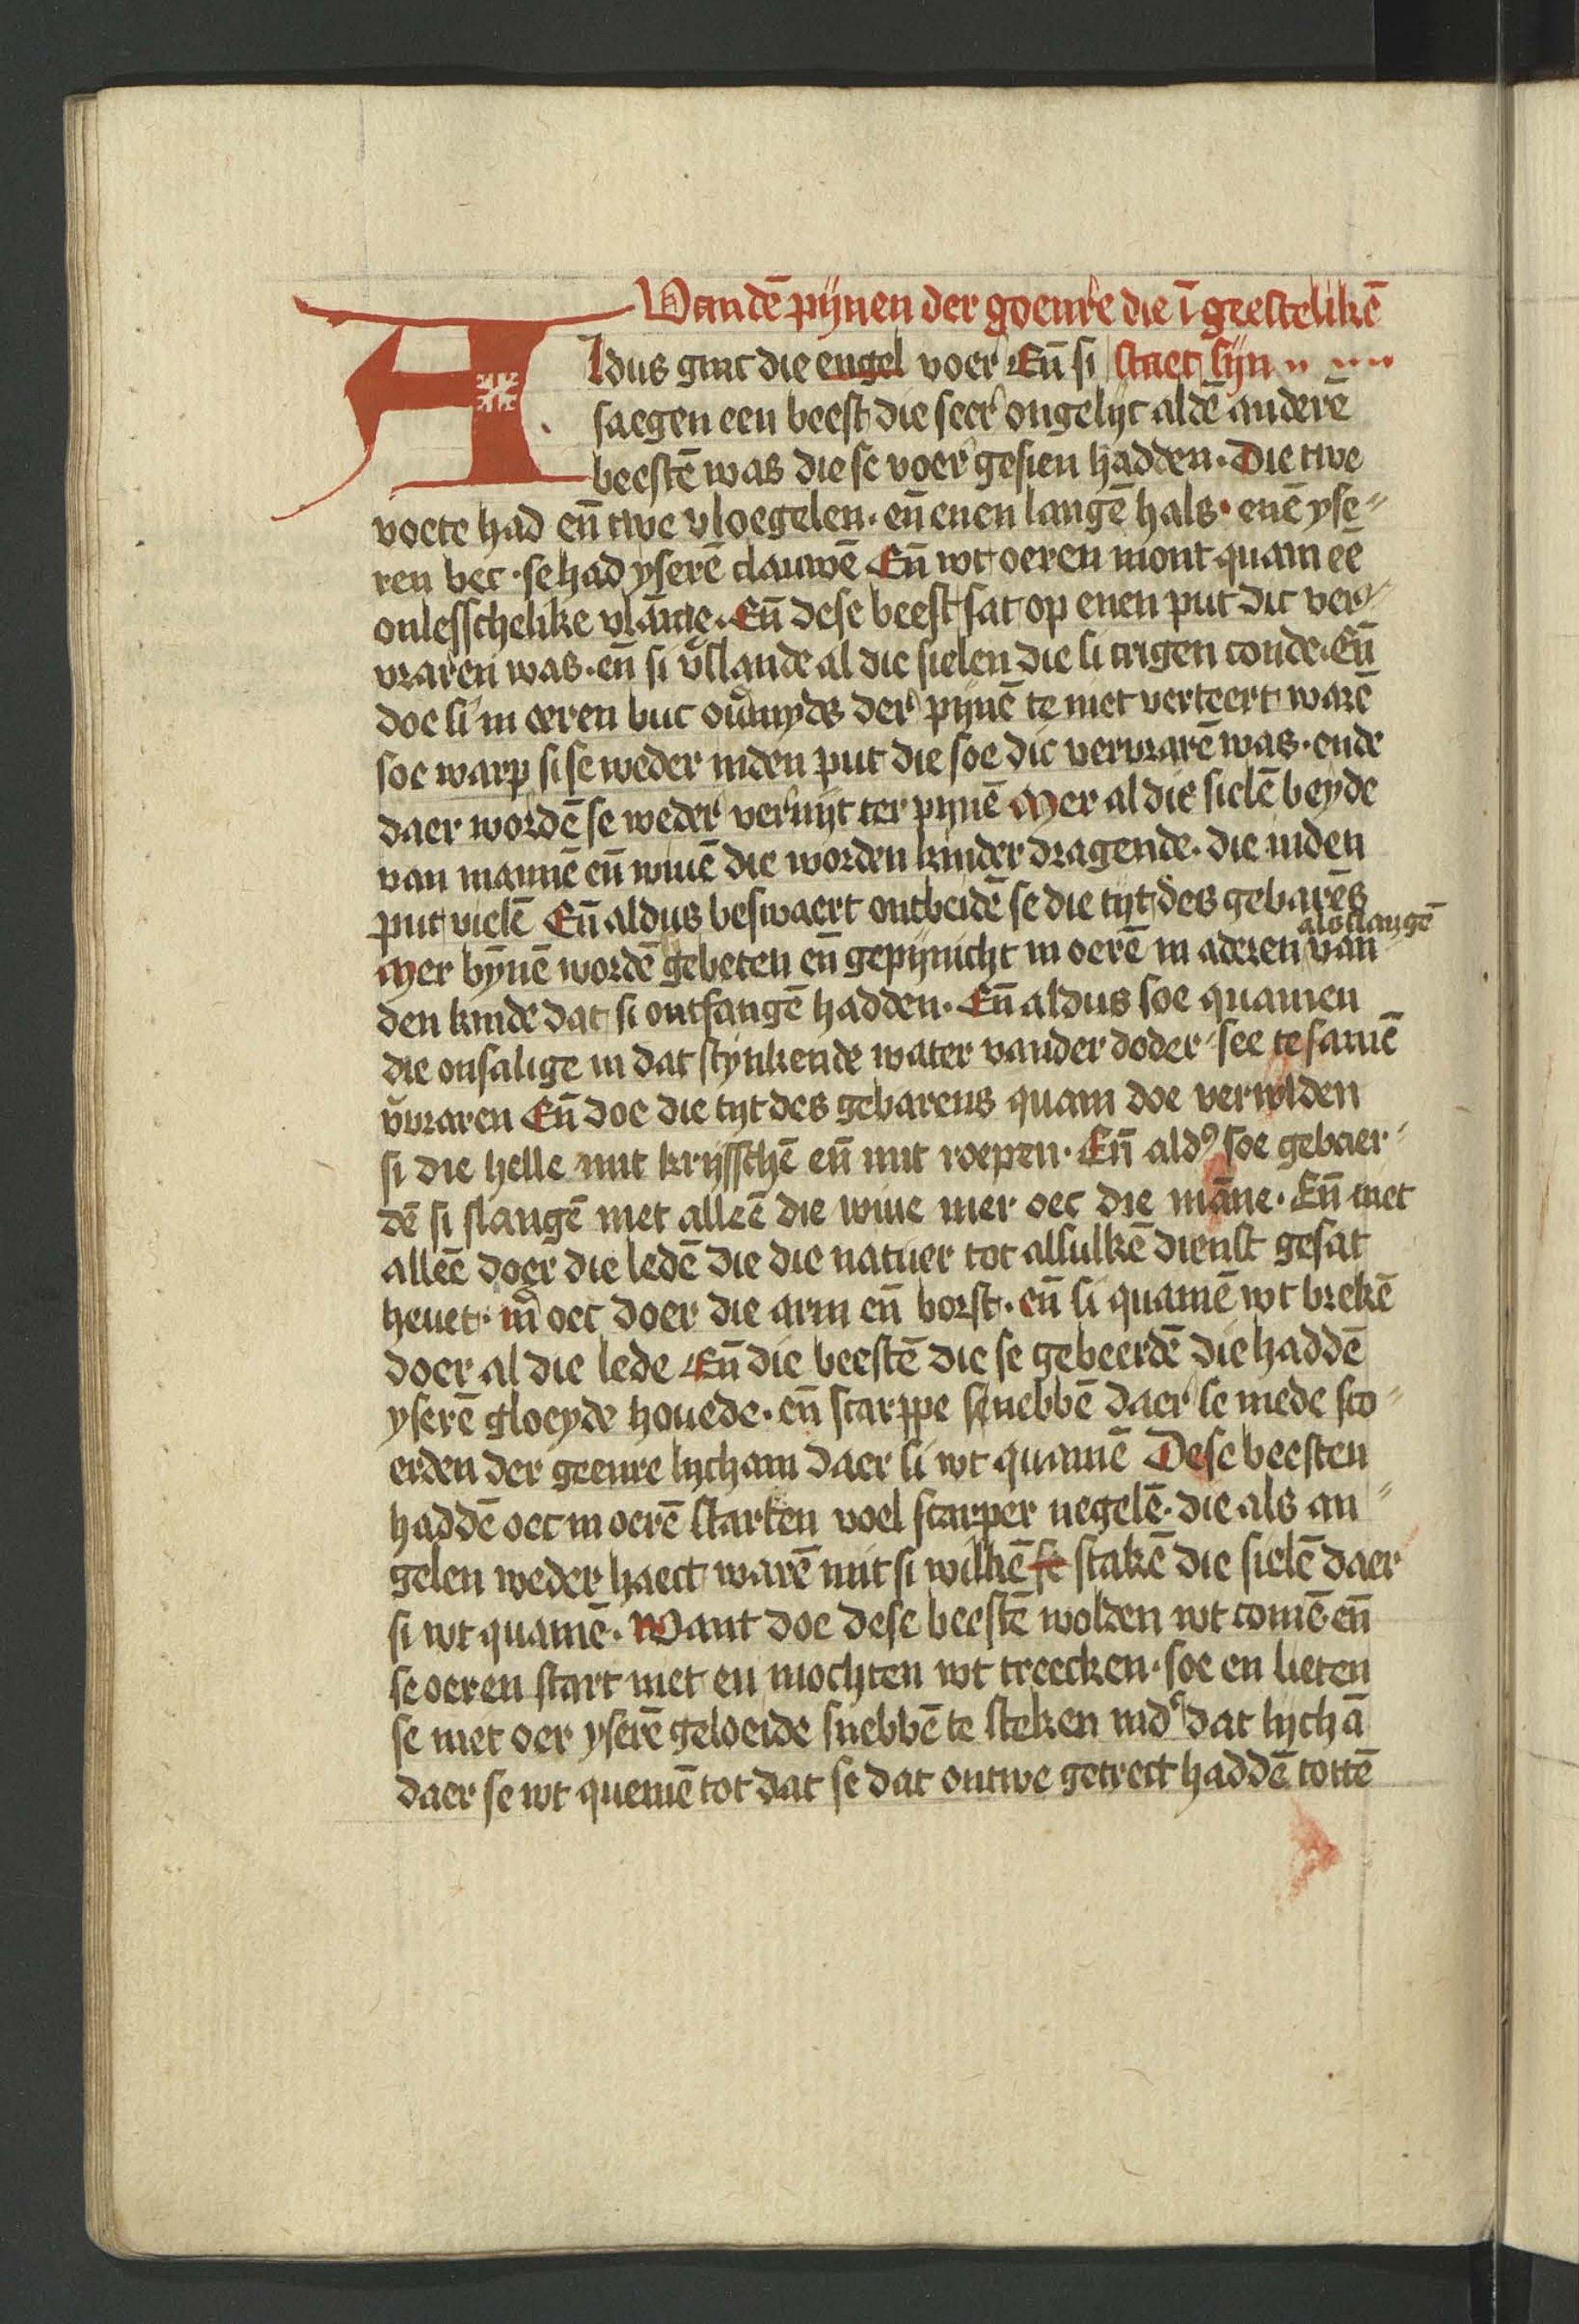 Vandē pijnen der goenre die ī geestelikē
Aldus ginc die engel voer Eñ si staet sijn
saegen een beest die seer ongelijc aldē anderē
beestē was die se voer gesien hadden. Die twe
voete had eñ twe vloegelen. eñ enen langē hals. enē yse⸗
ren bec. se had yserē clauwē Eñ wt oeren mont quam eē
onlesschelike vlāme. Eñ dese beest sat op enen put dic ver⸗
vraren was. eñ si v̄slande al die sielen die si crigen conde. Eñ
doe si in oeren buc oumyds der pijnē te niet verteert warē
soe warp si se weder inden put die soe dic vervrarē was. ende
daer wordē se weder vernijt ter pijnē Mer al die sielē beyde
van mannē eñ wiuē die worden kinder dragende. die inden
put vielē Eñ aldus beswaert ontbeidē se die tijt des gebarēs
als slangē
Mer bynē wordē gebeten eñ gepijnicht in oerē in aderen van
den kinde dat si ontfangē hadden. Eñ aldus soe quamen
die onsalige in dat stynkende water vander doder see te samē
v̄vraren Eñ doe die tijt des gebarens quam doe vervulden
si die helle mit krijsschē eñ mit roepen. Eñ ald⁹ soe gebaer⸗
dē si slangē niet alleē die wiue mer oec die māne. Eñ niet
alleē doer die ledē die die natuer tot alsulkē dienst gesat
heuet. m̄ oec doer die arm eñ borst. eñ si quamē wt brekē
doer al die lede Eñ die beestē die se gebeerdē die haddē
yserē gloeyde houede. eñ scarppe snebbē daer se mede sto⸗
erden der geenre lycham daer si wt quamē Dese beesten
haddē oec in oerē starten voel scarper negelē. die als an⸗
gelen weder haect warē mit si wilkē se stakē die sielē daer
si wt quamē. Want doe dese beestē wolden wt comē. eñ
se oeren start niet en mochten wt treecken. soe en lieten
se niet oer yserē geloeide snebbē te steken ind⁹ dat lychā
daer se wt quemē tot dat se dat ontwe getrect haddē tottē